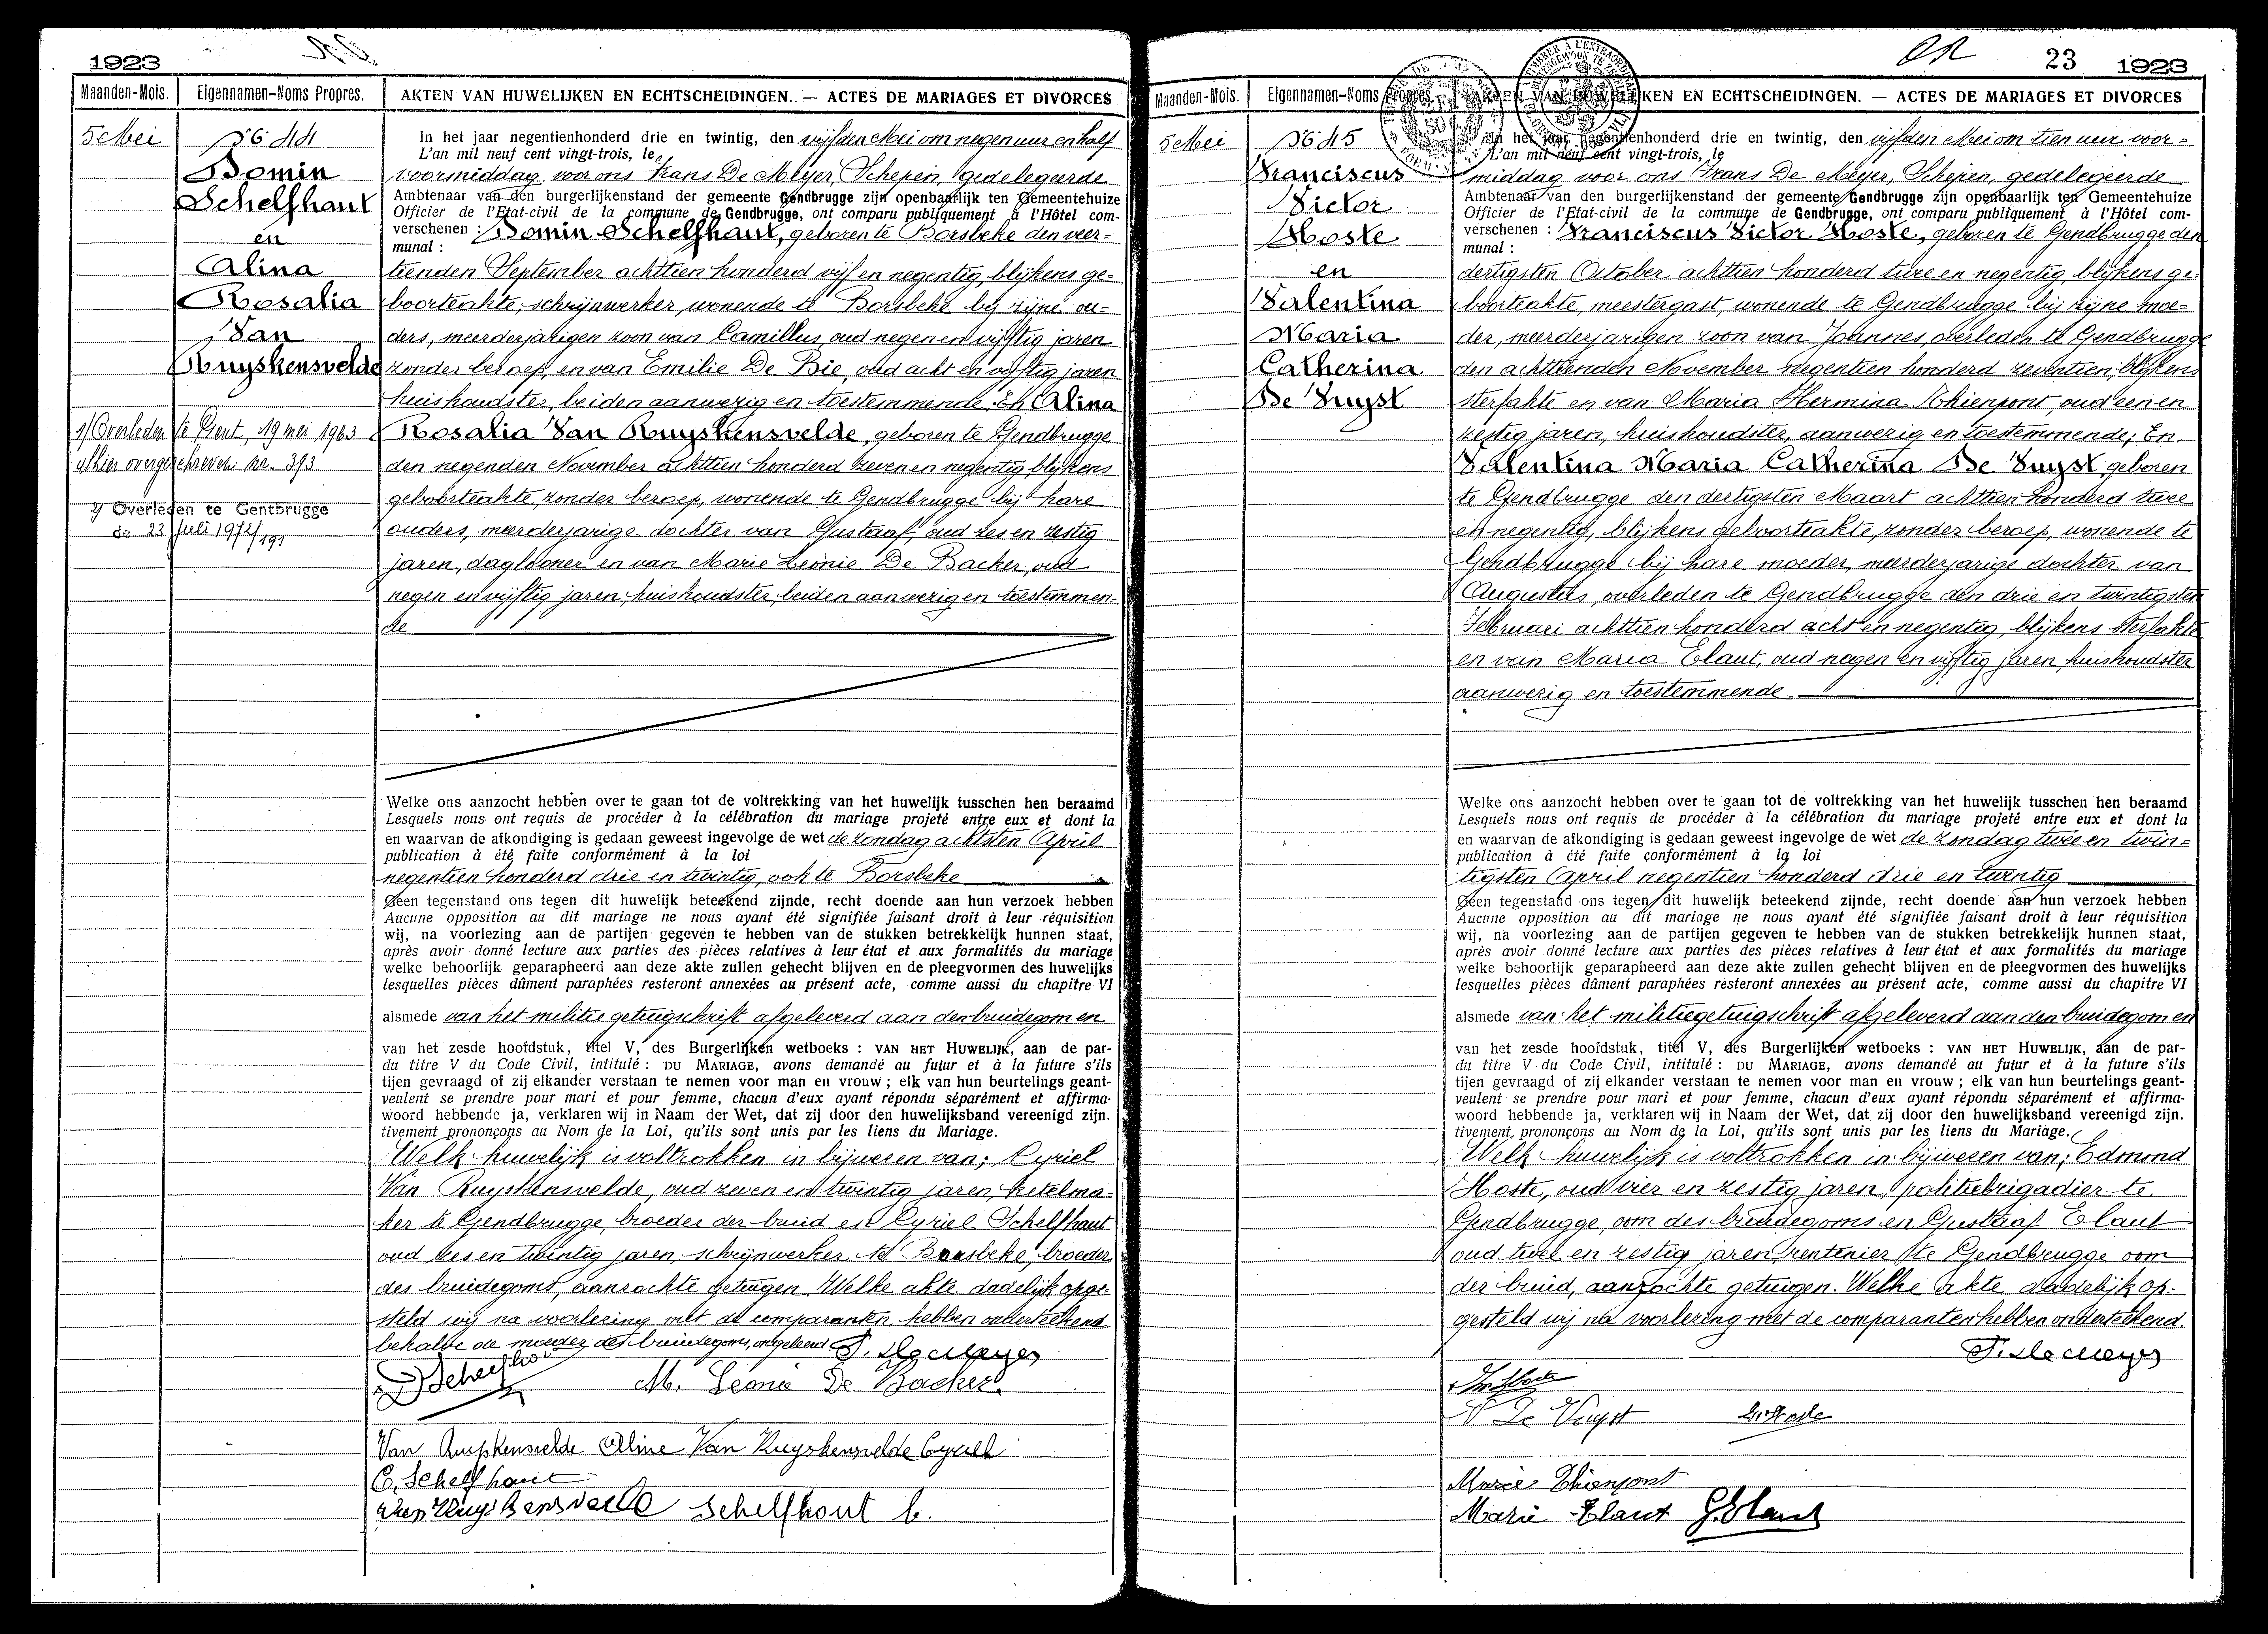 1923
Maanden-Mois. Eigennamen-Noms Propres. AKTEN VAN HUWELIJKEN EN ECHTSCHEIDINGEN. — ACTES DE MARIAGES ET DIVORCES
5 Mei
No 44
Domin
Schelfhaut
en
Alina
Rosalia
Van
Ruyskensvelde
1/ Overleden te Gent, 19 mei 1963
alhier overgeschreven nr. 393
2/ Overleden te Gentbrugge
de 23 juli 1972/191
In het jaar negentienhonderd drie en twintig, den vijfden Mei om negen uur en half
L'an mil neuf cent vingt-trois, le
voormiddag voor ons Frans De Meyer, Schepen, gedelegeerde
Ambtenaar van den burgerlijkenstand der gemeente Gendbrugge zijn openbaarlijk ten Gemeentehuize
Officier de l'Etat-civil de la commune de Gendbrugge, ont comparu publiquement à l'Hôtel com-
verschenen : Domin Schelfhaut, geboren te Borsbeke den veer=
munal :
tienden September achttien honderd vijf en negentig, blijkens ge-
boorteakte, schrijnwerker, wonende te Borsbeke bij zijne ou-
ders, meerderjarigen zoon van Camillus, oud negen en vijftig jaren
zonder beroep, en van Emilie De Bie, oud acht en vijftig jaren
huishoudster, beiden aanwezig en toestemmende. En Alina
Rosalia Van Ruyskensvelde, geboren te Gendbrugge
den negenden November achttien honderd zeven en negentig, blijkens
geboorteakte, zonder beroep, wonende te Gendbrugge bij hare
ouders, meerderjarige dochter van Gustaaf, oud zes en zestig
jaren, daglooner en van Marie Leonie De Backer, oud
negen en vijftig jaren, huishoudster, beiden aanwezig en toestemmen-
de
Welke ons aanzocht hebben over te gaan tot de voltrekking van het huwelijk tusschen hen beraamd
Lesquels nous ont requis de procéder à la célébration du mariage projeté entre eux et dont la
en waarvan de afkondiging is gedaan geweest ingevolge de wet de zondag achtsten April
publication à été faite conformément à la loi
negentien honderd drie en twintig, ook te Borsbeke
Geen tegenstand ons tegen dit huwelijk beteekend zijnde, recht doende aan hun verzoek hebben
Aucune opposition au dit mariage ne nous ayant été signifiée faisant droit à leur réquisition
wij, na voorlezing aan de partijen gegeven te hebben van de stukken betrekkelijk hunnen staat,
après avoir donné lecture aux parties des pièces relatives à leur état et aux formalités du mariage
welke behoorlijk geparapheerd aan deze akte zullen gehecht blijven en de pleegvormen des huwelijks
lesquelles pièces dûment paraphées resteront annexées au présent acte, comme aussi du chapitre VI
alsmede van het militie getuigschrift afgeleverd aan den bruidegom en
van het zesde hoofdstuk, titel V, des Burgerlijken wetboeks : VAN HET HUWELIJK, aan de par-
du titre V du Code Civil, intitulé : DU MARIAGE, avons demandé au futur et à la future s'ils
tijen gevraagd of zij elkander verstaan te nemen voor man en vrouw ; elk van hun beurtelings geant-
veulent se prendre pour mari et pour femme, chacun d'eux ayant répondu séparément et affirma-
woord hebbende ja, verklaren wij in Naam der Wet, dat zij door den huwelijksband vereenigd zijn.
tivement prononçons au Nom de la Loi, qu'ils sont unis par les liens du Mariage.
Welk huwelijk is voltrokken in bijwesen van; Cyriel
Van Ruyskensvelde, oud zeven en twintig jaren, ketelma-
ker te Gendbrugge, broeder der bruid en Cyriel Schelfhaut
oud zes en twintig jaren, schrijnwerker te Borsbeke, broeder
des bruidegoms, aanzochte getuigen. Welke akte dadelijk opge-
steld wij na voorlezing met de comparanten hebben onderteekend
behalve de moeder des bruidegoms, ongeleerd F. De Meyer
D Schelfhout
M. Leonie De Backer.
Van Ruyskensvelde Aline Van Ruyskensvelde Cyriel
C. Schelfhaut
Van Ruyskensvelde Schelfhout C.
23 1923
Maanden-Mois. Eigennamen-Noms Propres. AKTEN VAN HUWELIJKEN EN ECHTSCHEIDINGEN. — ACTES DE MARIAGES ET DIVORCES
5 Mei
No 45
Franciscus
Victor
Hoste
en
Valentina
Maria
Catherina
De Vuyst
In het jaar negentienhonderd drie en twintig, den vijfden Mei om tien uur voor=
L'an mil neuf cent vingt-trois, le
middag voor ons Frans De Meyer, Schepen, gedelegeerde
Ambtenaar van den burgerlijkenstand der gemeente Gendbrugge zijn openbaarlijk ten Gemeentehuize
Officier de l'Etat-civil de la commune de Gendbrugge, ont comparu publiquement à l'Hôtel com-
verschenen : Franciscus Victor Hoste, geboren te Gendbrugge den
munal :
dertigsten October achttien honderd twee en negentig, blijkens ge-
boorteakte, meestergast, wonende te Gendbrugge bij zijne moe=
der, meerderjarigen zoon van Joannes, overleden te Gendbrugge
den achttienden November negentien honderd zeventien, blijkens
sterfakte en van Maria Hermina Thienpont, oud een en
zestig jaren, huishoudster, aanwezig en toestemmende; En
Valentina Maria Catherina De Vuyst, geboren
te Gendbrugge den dertigsten Maart achttien honderd twee
en negentig, blijkens geboorteakte, zonder beroep, wonende te
Gendbrugge bij hare moeder, meerderjarige dochter van
Augustus, overleden te Gendbrugge den drie en twintigsten
Februari achttien honderd acht en negentig, blijkens sterfakte
en van Maria Elaut, oud negen en vijftig jaren, huishoudster
aanwezig en toestemmende
Welke ons aanzocht hebben over te gaan tot de voltrekking van het huwelijk tusschen hen beraamd
Lesquels nous ont requis de procéder à la célébration du mariage projeté entre eux et dont la
en waarvan de afkondiging is gedaan geweest ingevolge de wet de zondag twee en twin=
publication à été faite conformément à la loi
tigsten April negentien honderd drie en twintig
Geen tegenstand ons tegen dit huwelijk beteekend zijnde, recht doende aan hun verzoek hebben
Aucune opposition au dit mariage ne nous ayant été signifiée faisant droit à leur réquisition
wij, na voorlezing aan de partijen gegeven te hebben van de stukken betrekkelijk hunnen staat,
après avoir donné lecture aux parties des pièces relatives à leur état et aux formalités du mariage
welke behoorlijk geparapheerd aan deze akte zullen gehecht blijven en de pleegvormen des huwelijks
lesquelles pièces dûment paraphées resteront annexées au présent acte, comme aussi du chapitre VI
alsmede van het militiegetuigschrift afgeleverd aan den bruidegom en
van het zesde hoofdstuk, titel V, des Burgerlijken wetboeks : VAN HET HUWELIJK, aan de par-
du titre V du Code Civil, intitulé : DU MARIAGE, avons demandé au futur et à la future s'ils
tijen gevraagd of zij elkander verstaan te nemen voor man en vrouw ; elk van hun beurtelings geant-
veulent se prendre pour mari et pour femme, chacun d'eux ayant répondu séparément et affirma-
woord hebbende ja, verklaren wij in Naam der Wet, dat zij door den huwelijksband vereenigd zijn.
tivement prononçons au Nom de la Loi, qu'ils sont unis par les liens du Mariage.
Welk huwelijk is voltrokken in bijwesen van; Edmond
Hoste, oud vier en zestig jaren, politiebrigadier te
Gendbrugge, oom des bruidegoms en Gustaaf Elaut
oud twee en zestig jaren, rentenier te Gendbrugge oom
der bruid, aanzochte getuigen. Welke akte dadelijk op-
gesteld wij na voorlezing met de comparanten hebben onderteekend.
F. De Meyer
V De Vuyst
Marie Thienpont
Marie Elaut G. Elaut